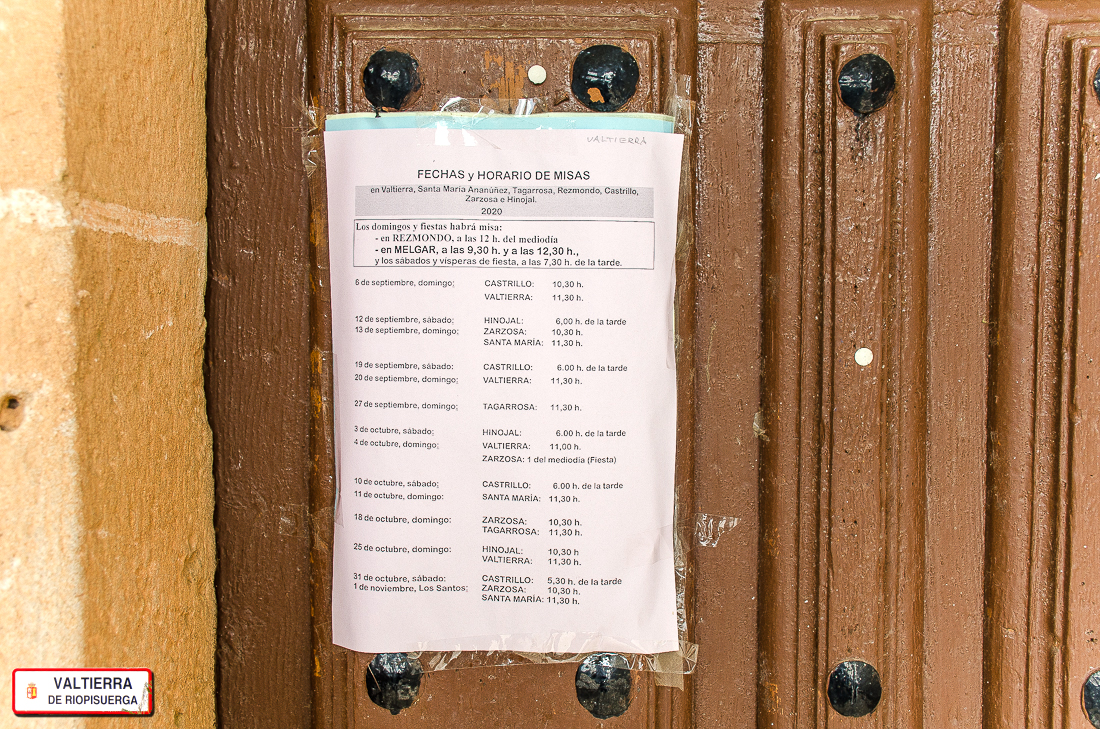 VALTIERRA
FECHAS y HORARIO DE MISAS
en Valtierra, Santa María Ananúñez, Tagarrosa, Rezmondo, Castrillo,
Zarzosa e Hinojal.
2020
Los domingos y fiestas habrá misa:
- en REZMONDO, a las 12 h. del mediodía
- en MELGAR, a las 9,30 h. y a las 12,30 h.,
y los sábados y vísperas de fiesta, a las 7,30 h. de la tarde.
6 de septiembre, domingo; CASTRILLO: 10,30 h.
VALTIERRA: 11,30 h.
12 de septiembre, sábado; HINOJAL: 6,00 h. de la tarde
13 de septiembre, domingo; ZARZOSA: 10,30 h.
SANTA MARÍA: 11,30 h.
19 de septiembre, sábado: CASTRILLO: 6.00 h. de la tarde
20 de septiembre, domingo; VALTIERRA: 11,30 h.
27 de septiembre, domingo; TAGARROSA: 11,30 h.
3 de octubre, sábado; HINOJAL: 6.00 h. de la tarde
4 de octubre, domingo; VALTIERRA: 11,00 h.
ZARZOSA: 1 del mediodía (Fiesta)
10 de octubre, sábado; CASTRILLO: 6.00 h. de la tarde
11 de octubre, domingo: SANTA MARÍA: 11,30 h.
18 de octubre, domingo: ZARZOSA: 10,30 h.
TAGARROSA: 11,30 h.
25 de octubre, domingo: HINOJAL: 10,30 h
VALTIERRA: 11,30 h.
31 de octubre, sábado: CASTRILLO: 5,30 h. de la tarde
1 de noviembre, Los Santos; ZARZOSA: 10,30 h.
SANTA MARÍA: 11,30 h.
VALTIERRA
DE RIOPISUERGA